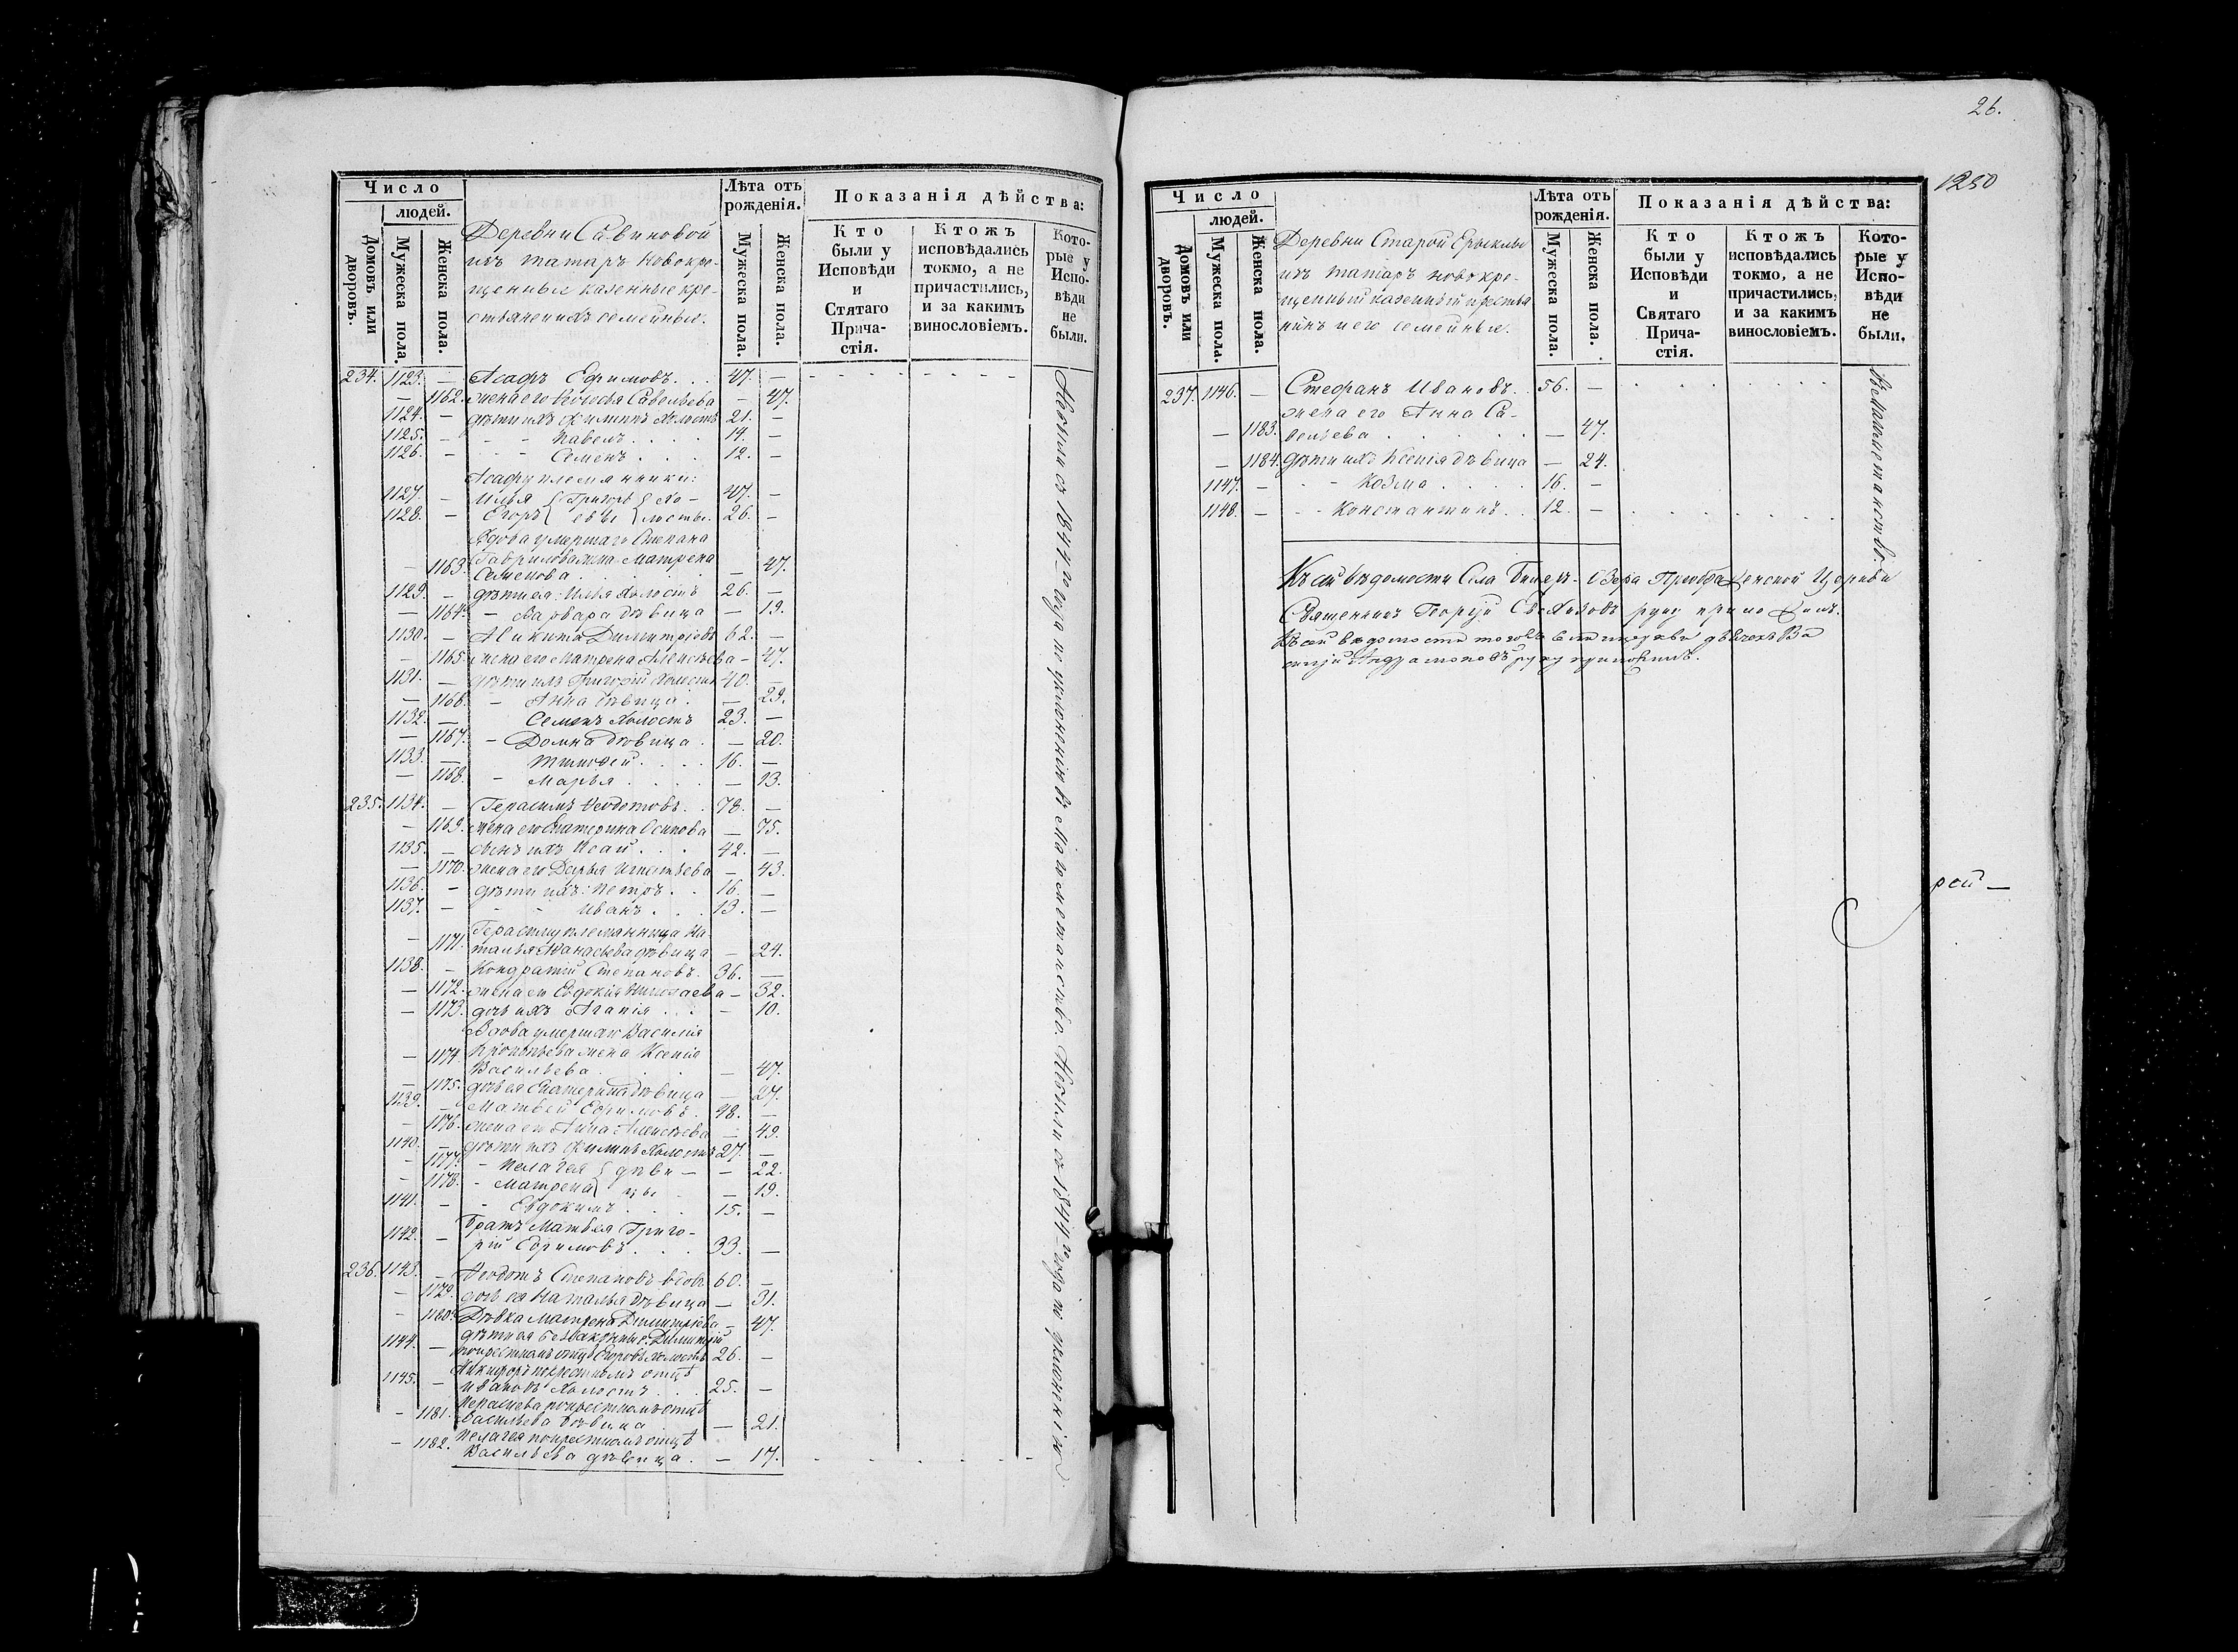 Число
людей.
Домовъ или дворовъ.
Мужеска пола.
Женска пола.
Деревни Савиновой
изъ татаръ новокре-
щенные казенные кре-
стьяне и ихъ семейные.
Лѣта отъ рожденія.
Мужеска пола.
Женска пола.
Показанія дѣйства:
Кто были у Исповѣди и Стятаго Прича-стія.
Ктожъ исповѣдались токмо, а не причастились, и за какимъ винословіемъ.
Кото-рые у Испо-вѣди не были.
234. 1123. — Асафъ Ефимовъ. . . 47. —
— 1162. жена его Савельева — 47.
1124. — дѣти ихъ Филипъ холостъ 21. —
1125. — Павелъ . . . . 14. —
1126. — Семенъ . . . 12. —
Асафу племянники:
1127. — Илья Григорь- хо- 47. —
1128. — Егоръ евы лосты. 26. —
Вдова умершаго Степана
Гаврилова жена Матрена
— 1163. Семенова . . . . — 47.
1129. — дѣти ея: Илья холостъ 26. —
— 1164. — Варвара дѣвица — 19.
1130. — Никита Димитріевъ 62. —
— 1165. жена его Матрена Алексѣева — 47.
1131. — дѣти ихъ Григорій холостъ 40. —
— 1166. — Анна дѣвица . — 29.
1132. — Семенъ холостъ 23. —
— 1167. — Домна дѣвица . — 20.
1133. — Тимофей . . . . 16. —
— 1168. — Марья . . . . — 13.
235. 1134. — Герасимъ Ѳеодотовъ. . 78. —
— 1169. жена его Екатерина Осипова — 75.
1135. — сынъ ихъ Исай . . . 42. —
— 1170. жена его Дарья Игнатьева — 43.
1136. — дѣти ихъ: Петръ . . 16. —
1137. — — Иванъ . . . 13. —
Герасиму племянница На-
— 1171. талья Аѳанасьева дѣвица — 24.
1138. — Кондратій Степановъ. 36. —
— 1172. жена ег Евдокія Николаева — 32.
— 1173. дочь ихъ Агапія . . . — 10.
Вдова умершаго Василія
— 1174. Прокопьева жена Ксенія
Васильева . . . . — 47.
— 1175. дочь ея Екатерина дѣвица — 27.
1139. — Матвей Ефимовъ. 48. —
— 1176. жена ег Анна Алексѣева — 49.
1140. — дѣти ихъ Филипъ холостъ 27. —
— 1177. — Пелагея дѣви- — 22.
— 1178. — Матрена цы — 19.
1141. — — Евдокимъ . . . 15. —
Братъ Матвея Григо-
1142. — рій Ефимовъ . . . 33. —
236. 1143. — Ѳеодотъ Степановъ вдовъ 60. —
— 1179. дочь ея Наталья дѣвица — 31.
— 1180. Дѣвка Матрена Димитріева — 47.
дѣти ея беззаконные: Димитрій
1144. — по крестномъ отцѣ Егоровъ холостъ 26. —
Никифоръ по крестномъ отцѣ
1145. — Ивановъ холостъ . . . 25. —
по крестномъ отцѣ
— 1181. Васильева дѣвица — 21.
Пелагея по крестномъ отцѣ
— 1182. Васильева дѣвица . — 17.
Небыли съ 1844го года по уклоненію въ Магометанство. Небыли съ 1844го года по уклоненію
26.
1250
Число
людей.
Домовъ или дворовъ.
Мужеска пола.
Женска пола.
Деревни Старой Ерыклы
изъ татаръ новокре-
щенный казенный крестья
нинъ и его семейные.
Лѣта отъ рожденія.
Мужеска пола.
Женска пола.
Показанія дѣйства:
Кто были у Исповѣди и Святаго Прича-стія.
Ктожъ исповѣдались токмо, а не причастились, и за какимъ винословіемъ.
Кото-рые у Испо-вѣди не были.
237. 1146. — Стефанъ Ивановъ. . 56. —
жена его Анна Са-
— 1183. вельева . . . . . — 47.
— 1184. дѣти ихъ Ксенія дѣвица — 24.
1147. — — Козма . . . . 16. —
1148. — — Константинъ . . 12. —
въ Магометанство.
Къ сей вѣдомости Села Билеръ-Озера Преображенской Церкви
Священникъ Георгій руку приложилъ.
Къ сей вѣдомости тоже церкви дьячекъ Ва
силій руку приложилъ.
рей —